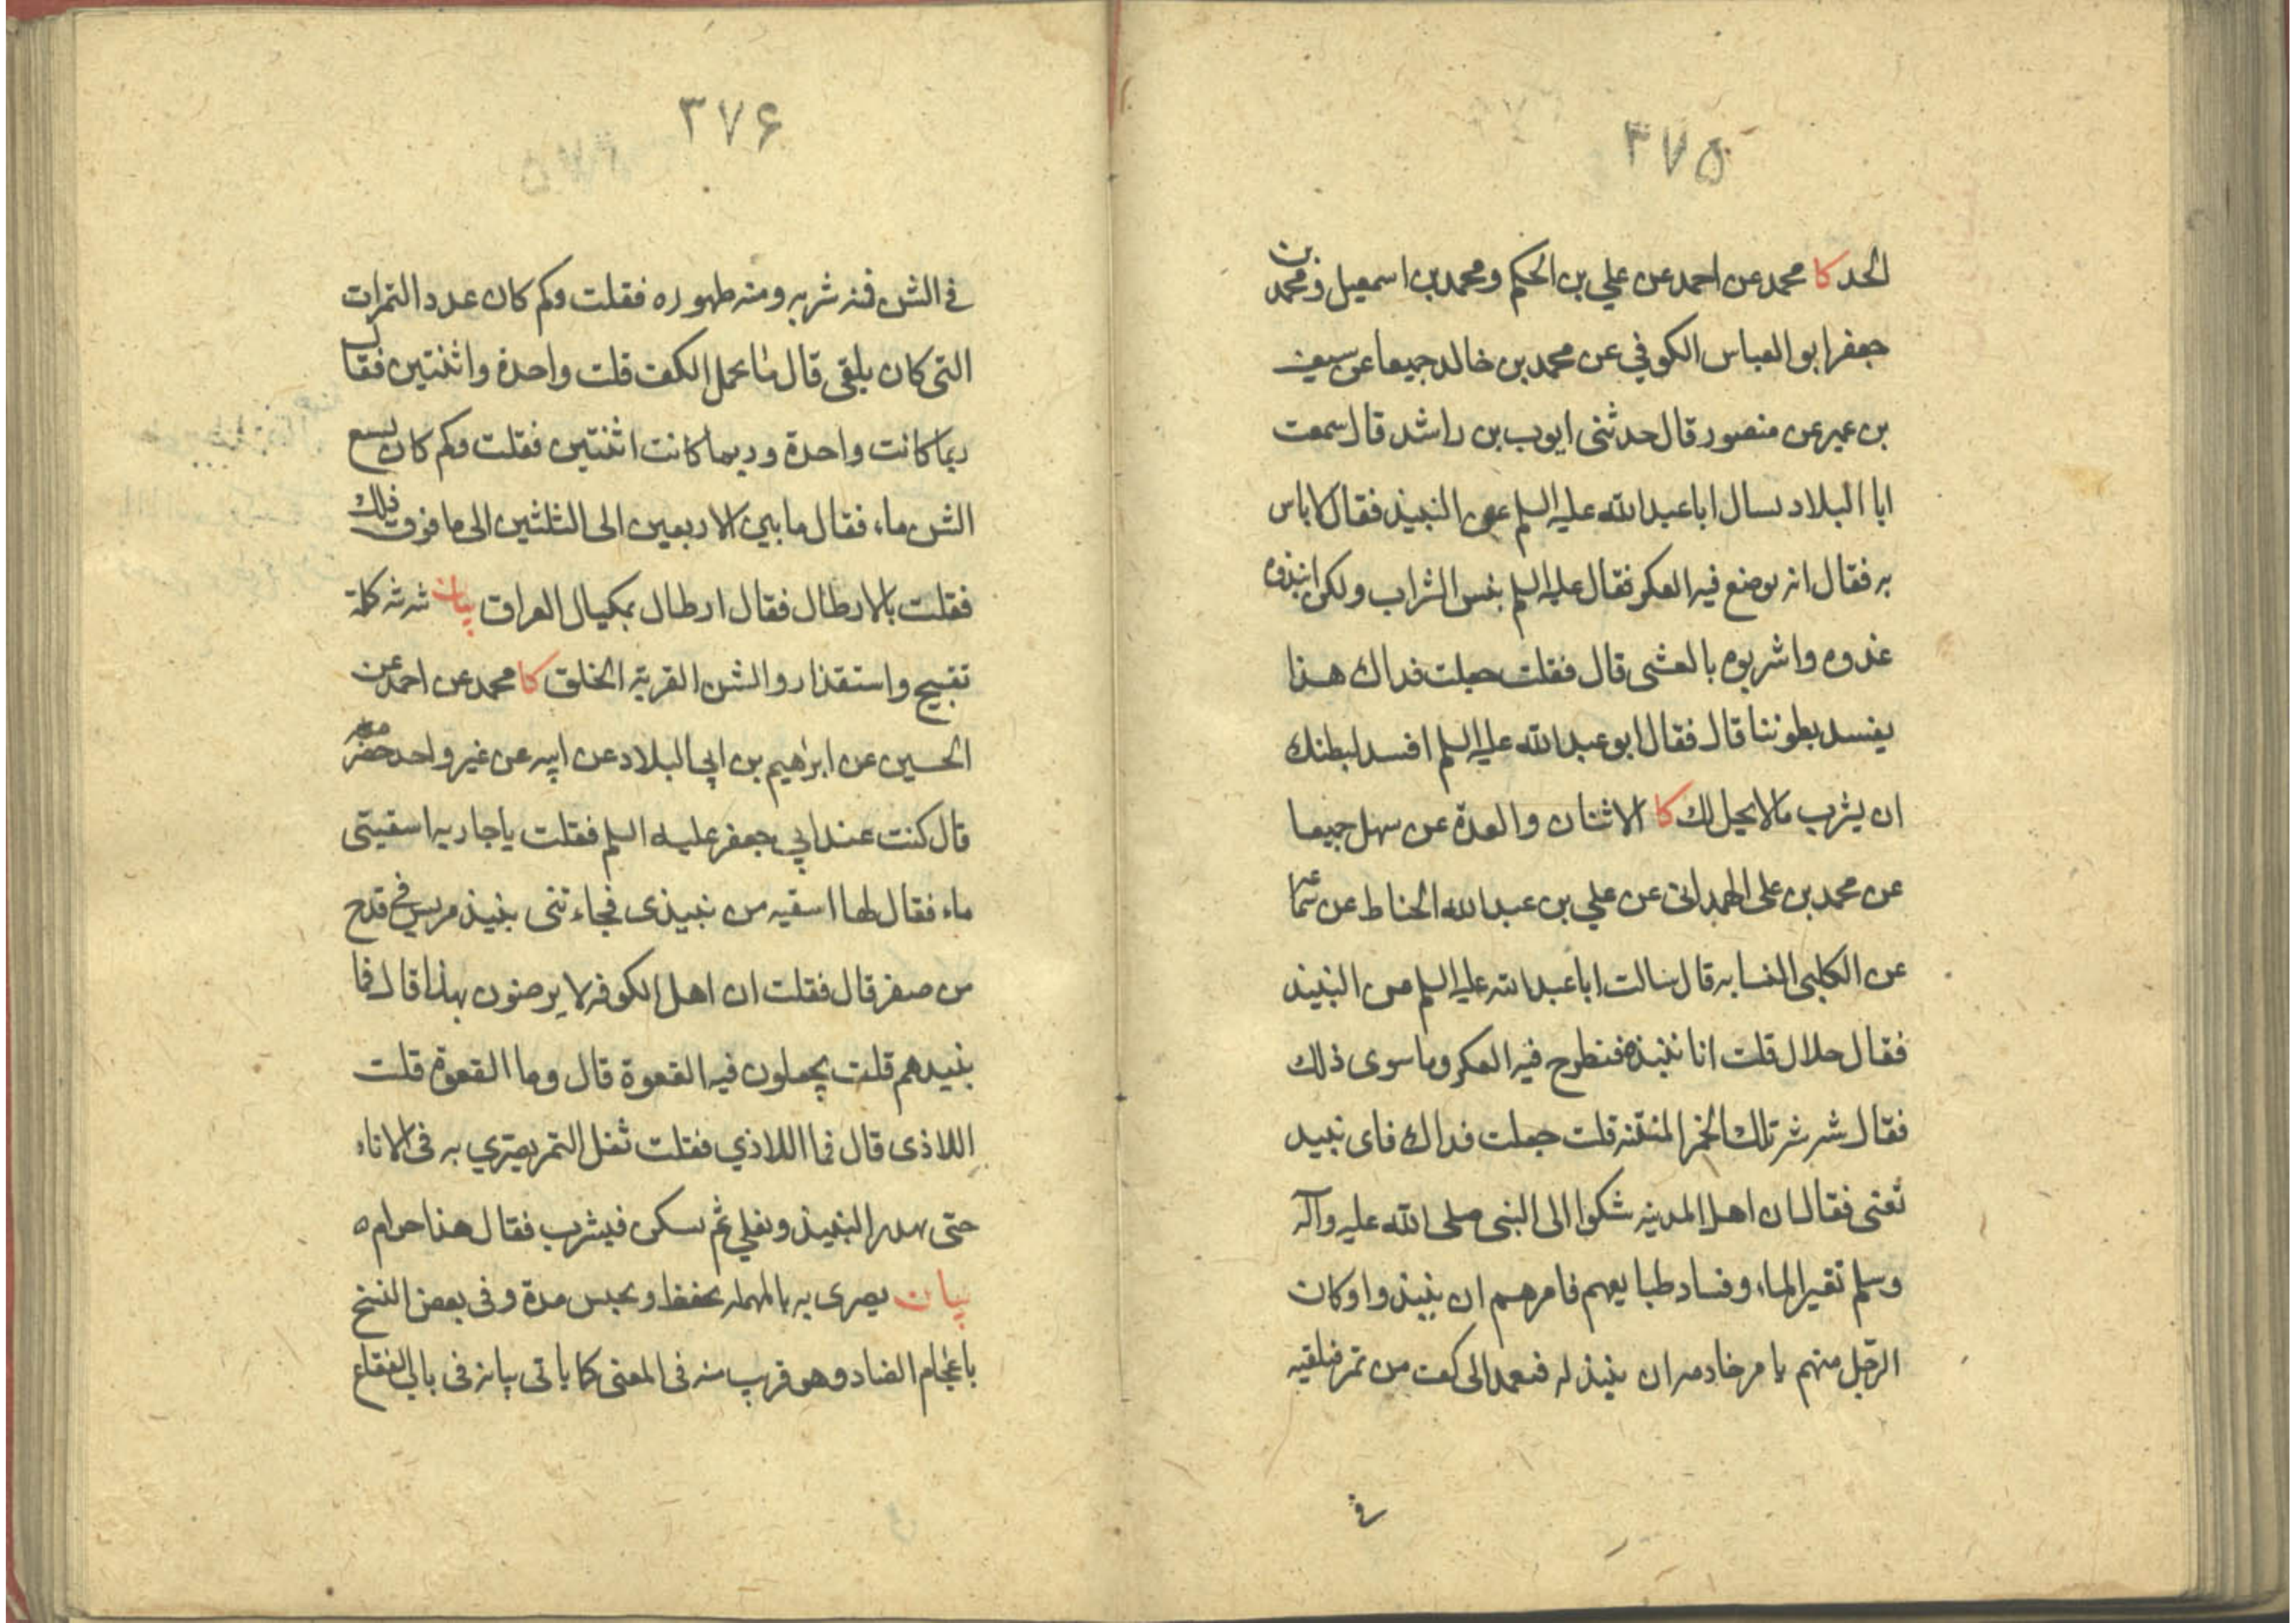 ۳۷۵
الحد كا محمد عن احمد عن علي بن الحكم ومحمد بن اسمعيل ومحمد بن
جعفر ابو العباس الكوفي عن محمد بن خالد جميعا عن سيف
بن عمير عن منصور قال حدثني ايوب بن راشد قال سمعت
ابا البلاد يسال ابا عبد الله عليه السلم عن النبيذ فقال لا باس
به فقال انه يوضع فيه العكر فقال عليه السلم بئس الشراب ولكن انبذوه
غدوه واشربوه بالعشى قال فقلت جعلت فداك هذا
يفسد بطوننا قال فقال ابو عبد الله عليه السلم افسد لبطنك
ان يشرب مالا يحل لك كا الاثنان والعدة عن سهل جميعا
عن محمد بن على الهمدانى عن علي بن عبد الله الحناط عن سماعة
عن الكلبى النسابه قال سالت ابا عبد الله عليه السلم عن النبيذ
فقال حلال قلت انا ننبذه فنطرح فيه العكر وما سوى ذلك
فقال شه شه تلك الخمر المنتنه قلت جعلت فداك فاى نبيذ
تعنى فقال ان اهل المدينه شكوا الى النبى صلى الله عليه وآله
وسلم تغير الماء وفساد طبايعهم فامرهم ان ينبذوا وكان
الرجل منهم يامر خادمه ان ينبذ له فيعمد الى كف من تمر فيلقيه
في
۳۷۶
في الشن فمنه شربه ومنه طهوره فقلت وكم كان عدد التمرات
التى كان يلقى قال ما يحمل الكف قلت واحدة واثنتين فقال
ربما كانت واحدة وربما كانت اثنتين فقلت وكم كان يسع
الشن ماء فقال ما بين الاربعين الى الثلثين الى ما فوق ذلك
فقلت بالارطال فقال ارطال بمكيال العراق بيان شه شه كلمة
تقبيح واستقذار والشن القربة الخلق كا محمد عن احمد عن
الحسين عن ابراهيم بن ابي البلاد عن ابيه عن غير واحد حضر معه
قال كنت عند ابي جعفر عليه السلم فقلت يا جاريه اسقينى
ماء فقال لها اسقيه من نبيذى فجاءتنى بنبيذ مريس في قدح
من صفر قال فقلت ان اهل الكوفه لا يرضون بهذا قال فما
نبيذهم قلت يجعلون فيه القعوة قال وما القعوة قلت
اللاذى قال فما اللاذي فقلت ثفل التمر يصري به فى الاناء
حتى يهدر النبيذ ويغلي ثم يسكن فيشرب فقال هذا حرام ه
بيان يصرى به بالمهمله يحفظ ويحبس مدة وفى بعض النسخ
باعجام الضاد وهو قريب منه فى المعنى كما ياتى بيانه فى باب الفقاع